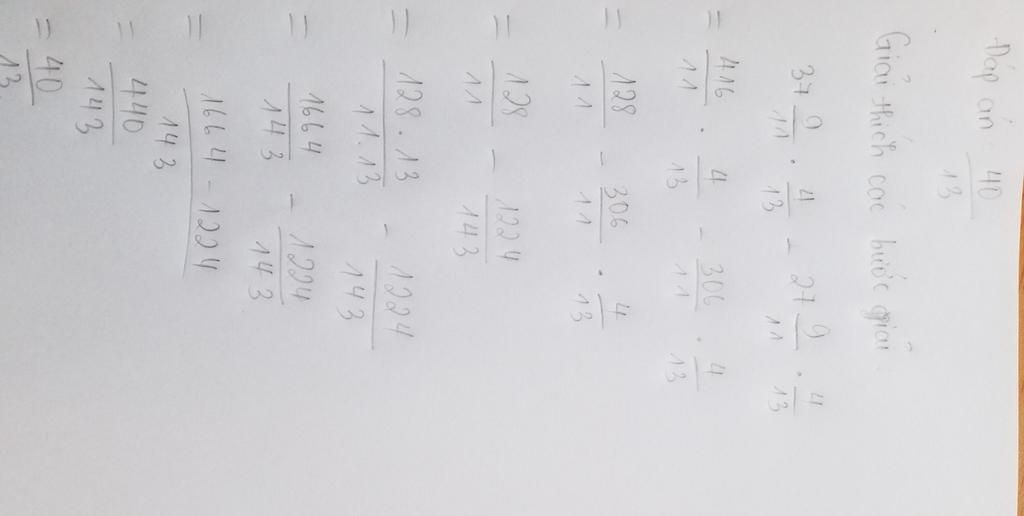 Đáp án 40/13
Giải thích các bước giải
37 9/11 . 4/13 - 27 9/11 . 4/13
= 416/11 . 4/13 - 306/11 . 4/13
= 128/11 - 306/11 . 4/13
= 128/11 - 1224/143
= 128.13/11.13 - 1224/143
= 1664/143 - 1224/143
= 1664-1224/143
= 440/143
= 40/13